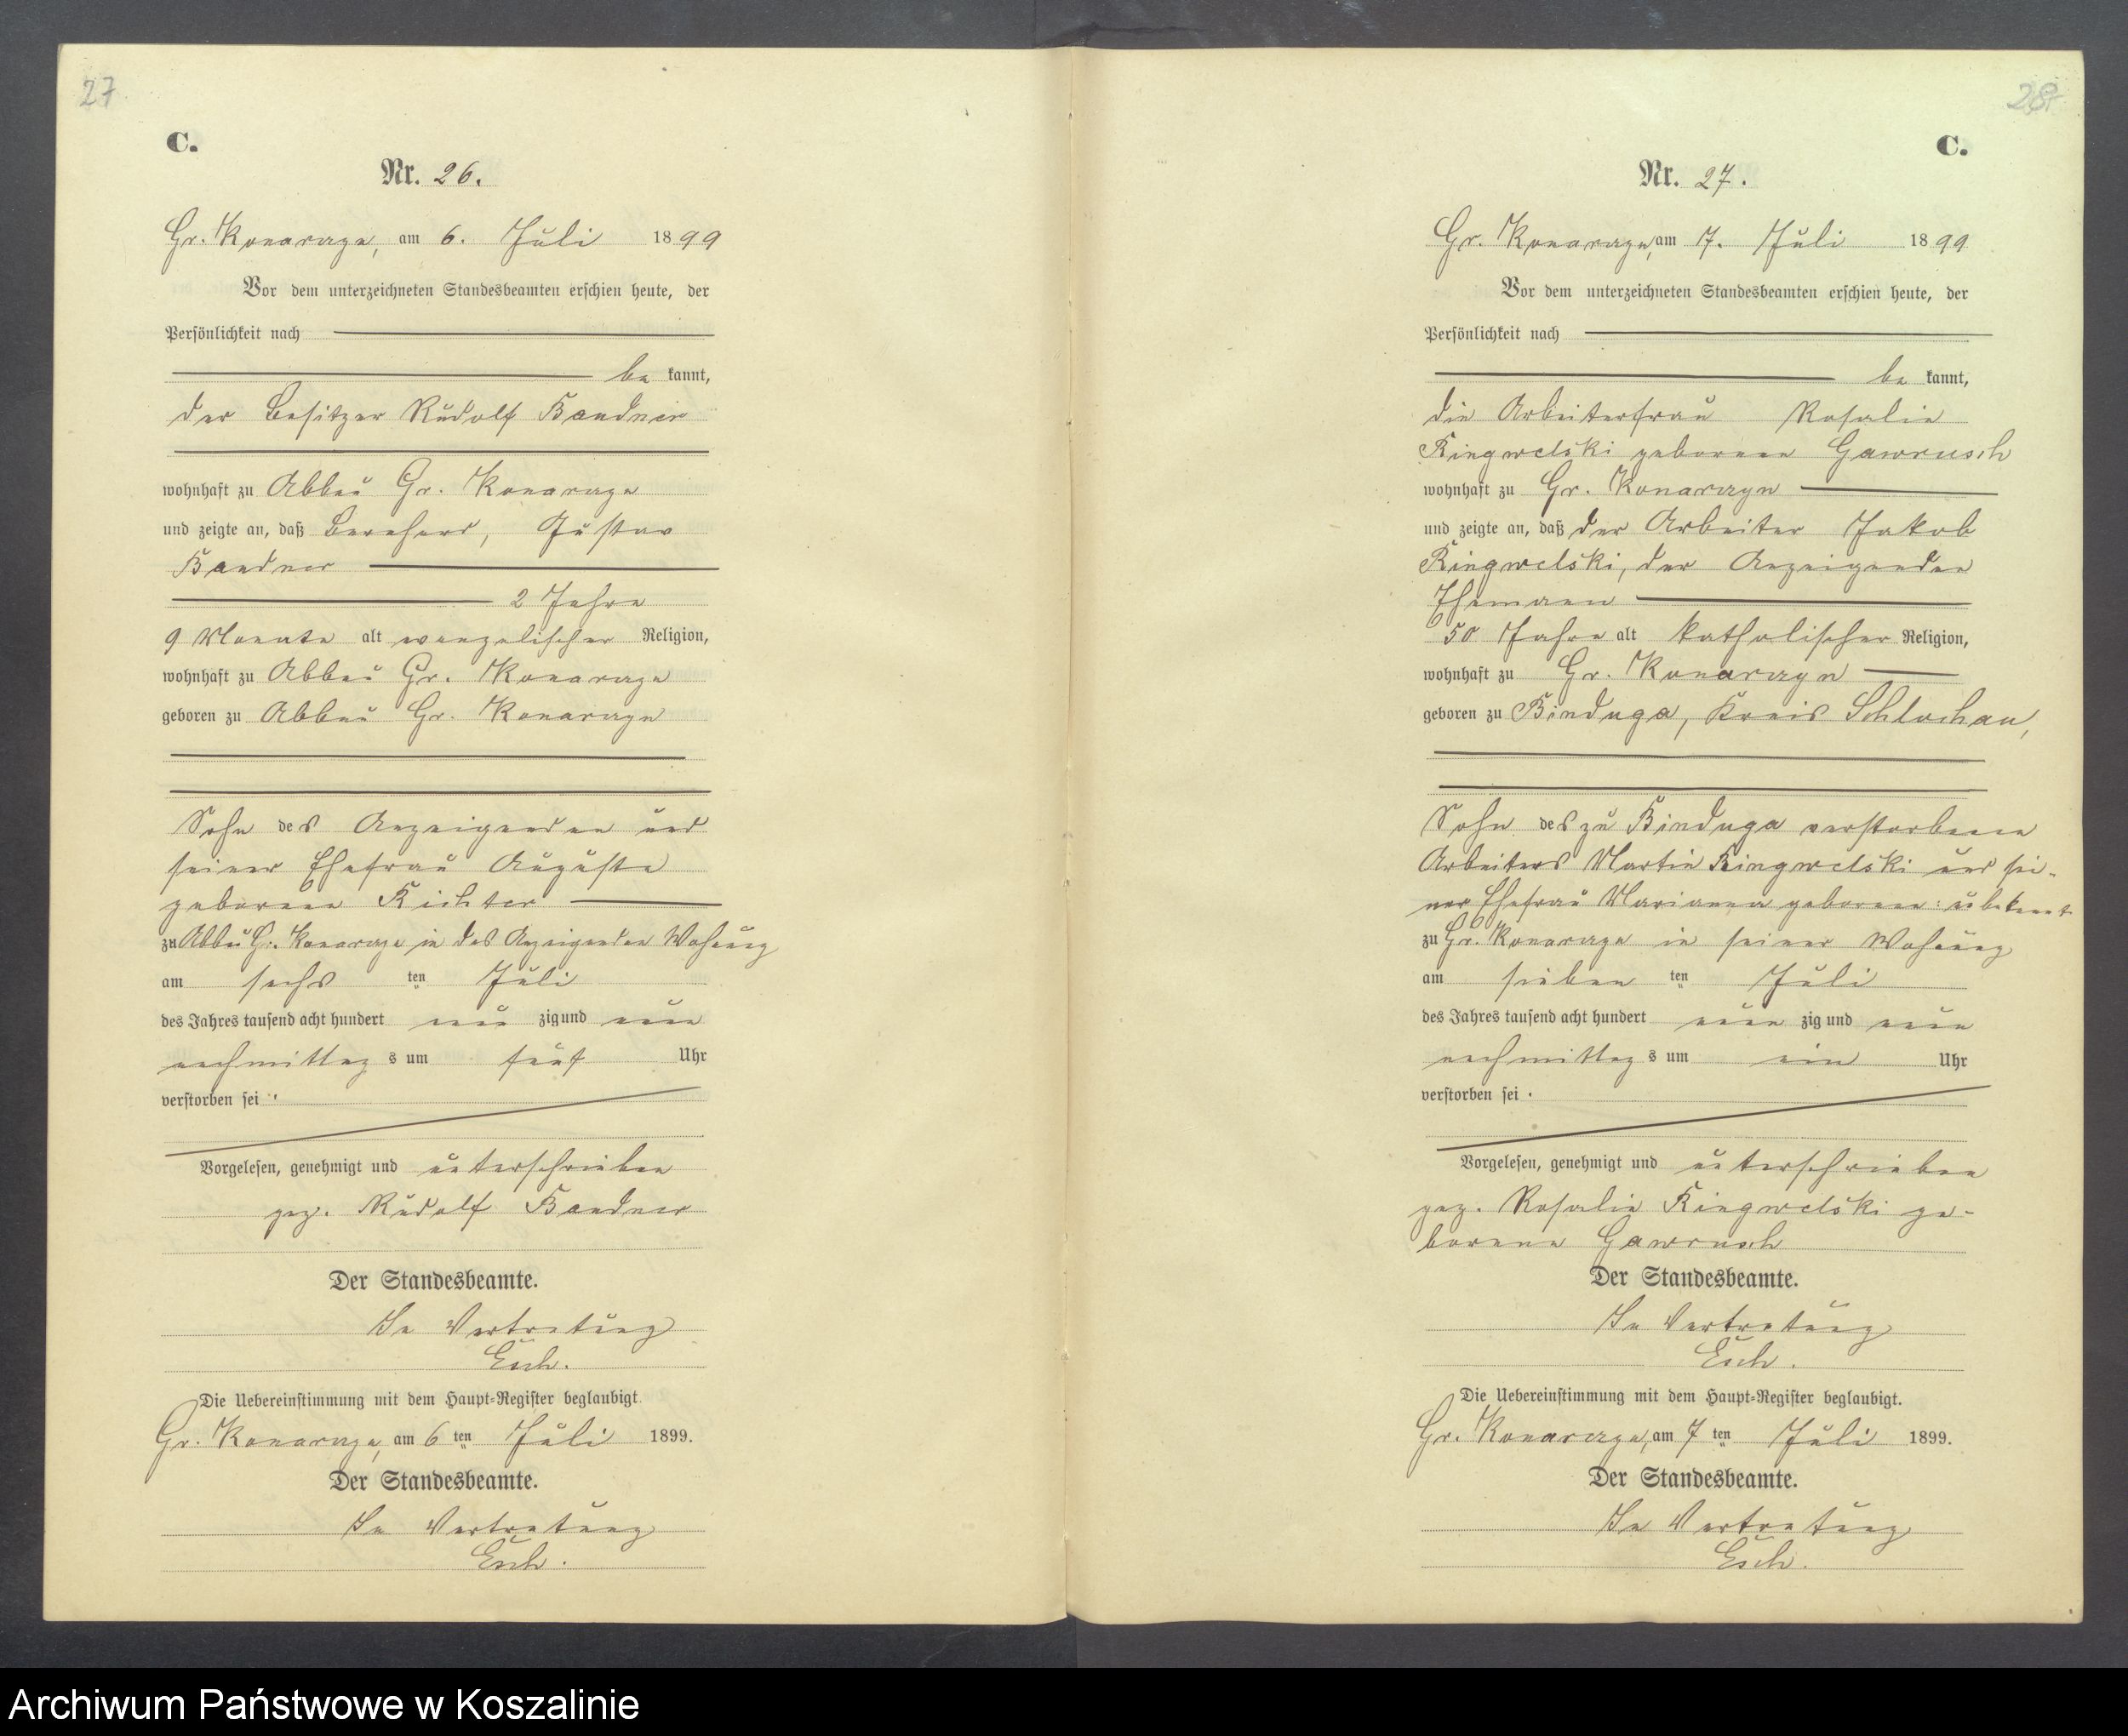 27
C.
Nr. 26.
Gr. Konarczyn, am 6. Juli 1899
Vor dem unterzeichneten Standesbeamten erschien heute, der
Persönlichkeit nach
be kannt,
der Besitzer Rudolf Bandner
wohnhaft zu Abbau Gr. Konarczyn
und zeigte an, daß Bernhard, Gustav
Bandner
2 Jahre
9 Monate alt evangelischer Religion,
wohnhaft zu Abbau Gr. Konarczyn
geboren zu Abbau Gr. Konarczyn
Sohn des Anzeigenden und
seiner Ehefrau Auguste
geborene Richter
zu Abbau Gr. Konarczyn in des Anzeigenden Wohnung
am sechs ten Juli
des Jahres tausend acht hundert neun zig und neun
nachmittag s um fünf Uhr
verstorben sei.
Vorgelesen, genehmigt und unterschrieben
gez. Rudolf Bandner
Der Standesbeamte.
In Vertretung
Esch.
Die Uebereinstimmung mit dem Haupt-Register beglaubigt.
Gr. Konarczyn, am 6 ten Juli 1899.
Der Standesbeamte.
In Vertretung
Esch.
28
C.
Nr. 27.
Gr. Konarczyn, am 7. Juli 1899
Vor dem unterzeichneten Standesbeamten erschien heute, der
Persönlichkeit nach
be kannt,
die Arbeiterfrau Rosalie
Ringwelski geborene Gawrusch
wohnhaft zu Gr. Konarczyn
und zeigte an, daß der Arbeiter Jakob
Ringwelski, der Anzeigenden
Ehemann
50 Jahre alt katholischer Religion,
wohnhaft zu Gr. Konarczyn
geboren zu Binduga, Kreis Schlochau,
Sohn des zu Binduga verstorbenen
Arbeiters Martin Ringwelski und sei-
ner Ehefrau Marianna geborene: unbekannt
zu Gr. Konarczyn in seiner Wohnung
am sieben ten Juli
des Jahres tausend acht hundert neun zig und neun
nachmittag s um ein Uhr
verstorben sei.
Vorgelesen, genehmigt und unterschrieben
gez. Rosalie Ringwelski ge-
borene Gawrusch
Der Standesbeamte.
In Vertretung
Esch.
Die Uebereinstimmung mit dem Haupt-Register beglaubigt.
Gr. Konarczyn, am 7 ten Juli 1899.
Der Standesbeamte.
In Vertretung
Esch.
Archiwum Państwowe w Koszalinie